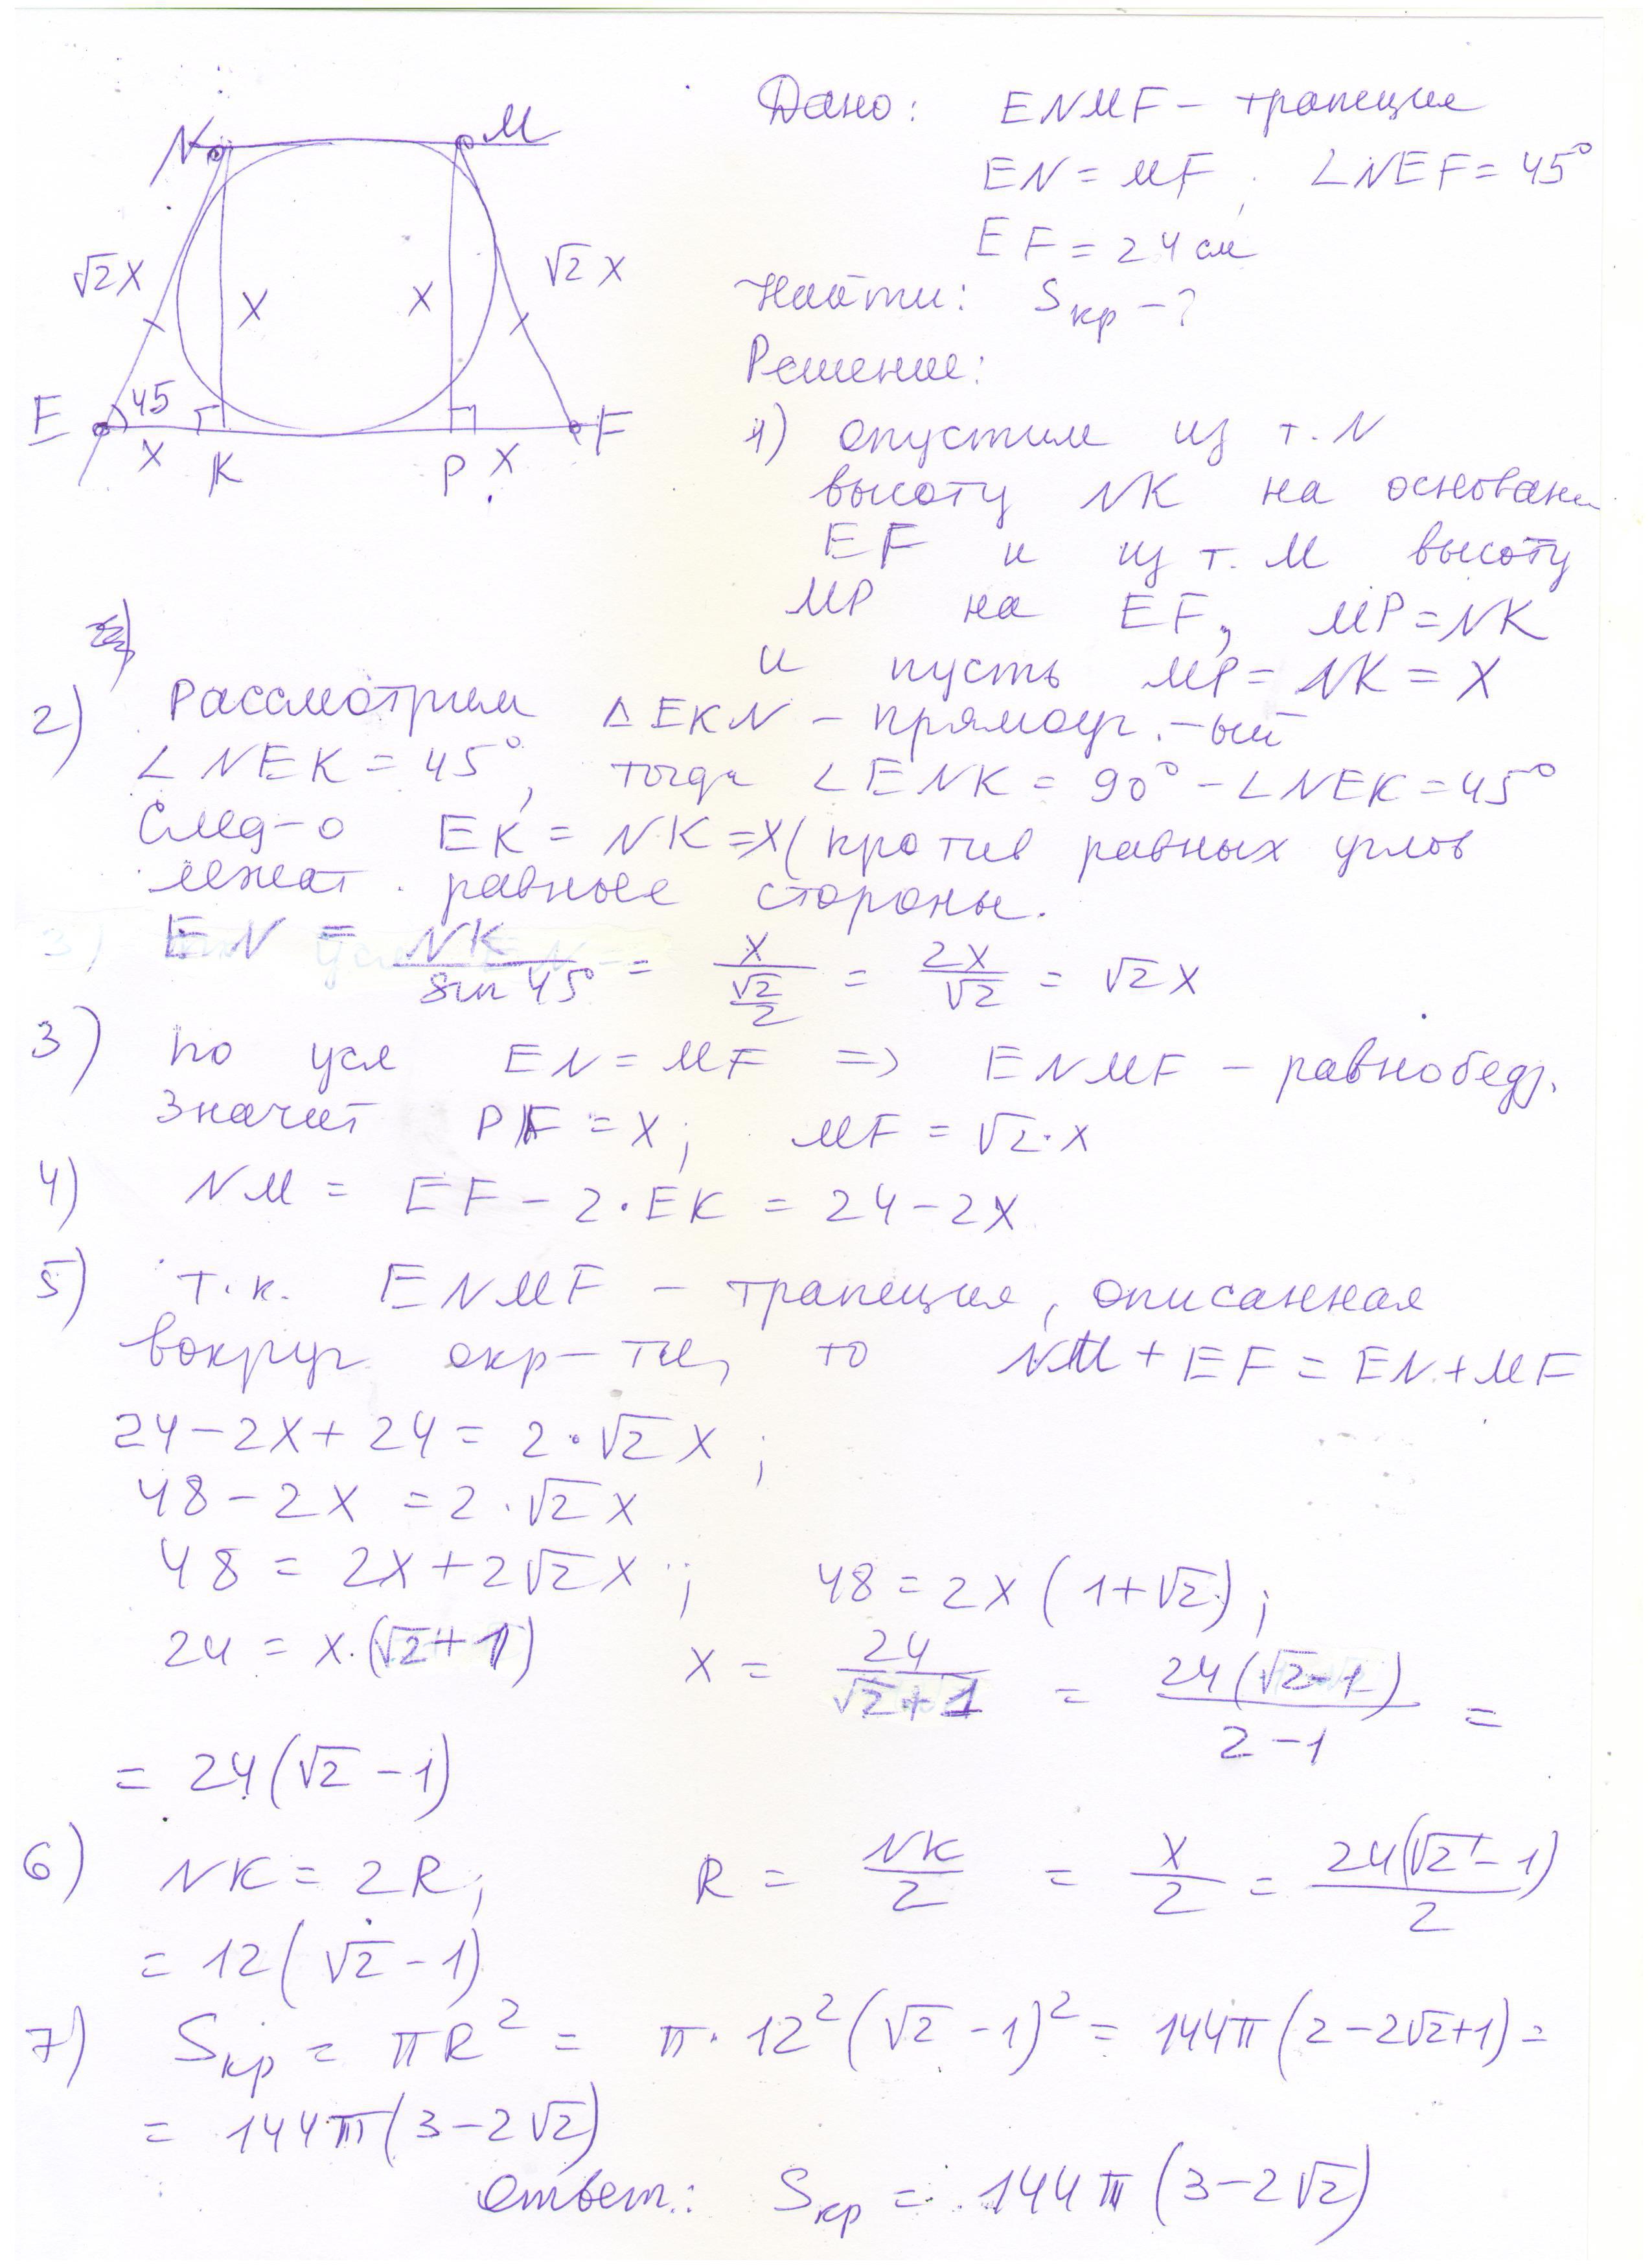 Дано: ENMF - трапеция
EN = MF, ∠NEF = 45°
EF = 24 см
Найти: Sкр - ?
Решение:
N M
√2x x x √2x
E 45 F
x K P x
1) опустим из т. N
высоту NK на основани
EF и из т. M высоту
MP на EF, MP = NK
и пусть MP = NK = x
2) Рассмотрим ΔEKN - прямоуг.-ый
∠NEK = 45°, тогда ∠ENK = 90° - ∠NEK = 45°
След-о EK = NK = x (против равных углов
лежат равные стороны.
EN = NK/sin 45° = x/(√2/2) = 2x/√2 = √2x
3) по усл EN = MF => ENMF - равнобедр.
Значит PF = x; MF = √2·x
4) NM = EF - 2·EK = 24 - 2x
5) т.к. ENMF - трапеция, описанная
вокруг окр-ти, то NM + EF = EN + MF
24 - 2x + 24 = 2·√2x;
48 - 2x = 2·√2x
48 = 2x + 2√2x; 48 = 2x(1+√2);
24 = x·(√2+1) x = 24/(√2+1) = 24(√2-1)/(2-1) =
= 24(√2-1)
6) NK = 2R; R = NK/2 = x/2 = 24(√2-1)/2
= 12(√2-1)
7) Sкр = πR² = π·12²(√2-1)² = 144π(2-2√2+1) =
= 144π(3-2√2)
Ответ: Sкр = 144π(3-2√2)